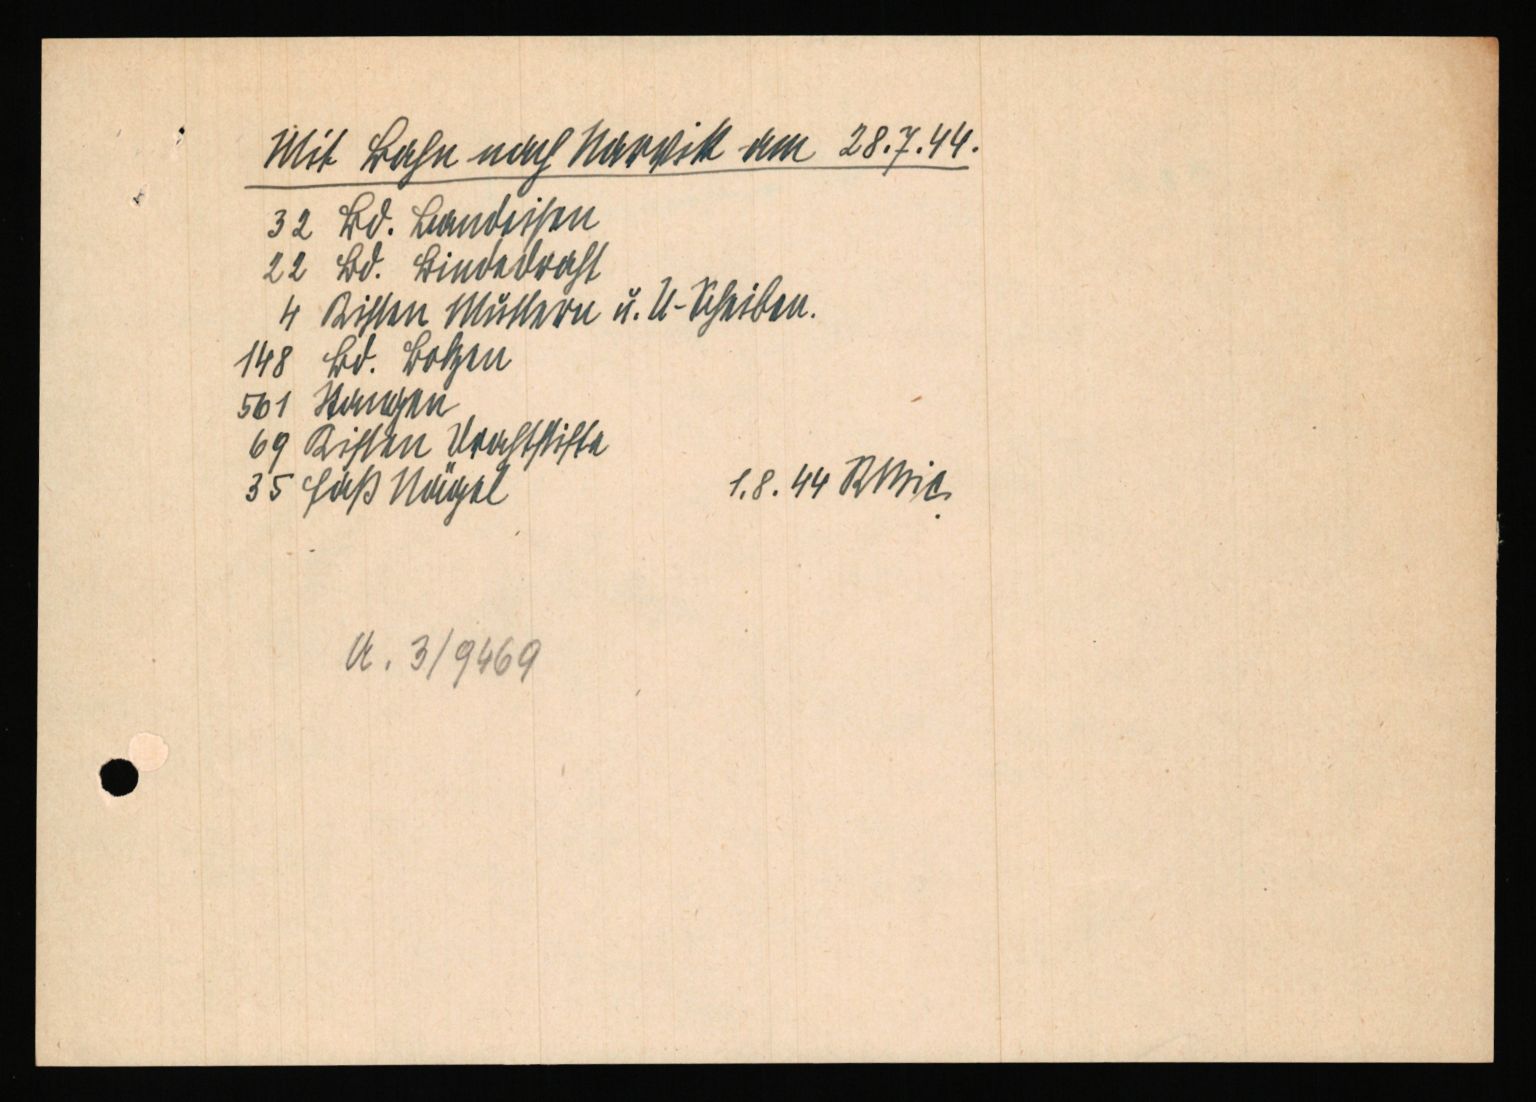 Mit Bahn nach Narvik am 28.7.44.
32 Bd. Bandeisen
22 Bd. Bindedraht
4 Kisten Muttern u. U-Scheiben.
148 Bd. Bolzen
501 Stangen
69 Kisten Drahtstifte
35 Faß Nägel
1.8.44
A. 3/9469